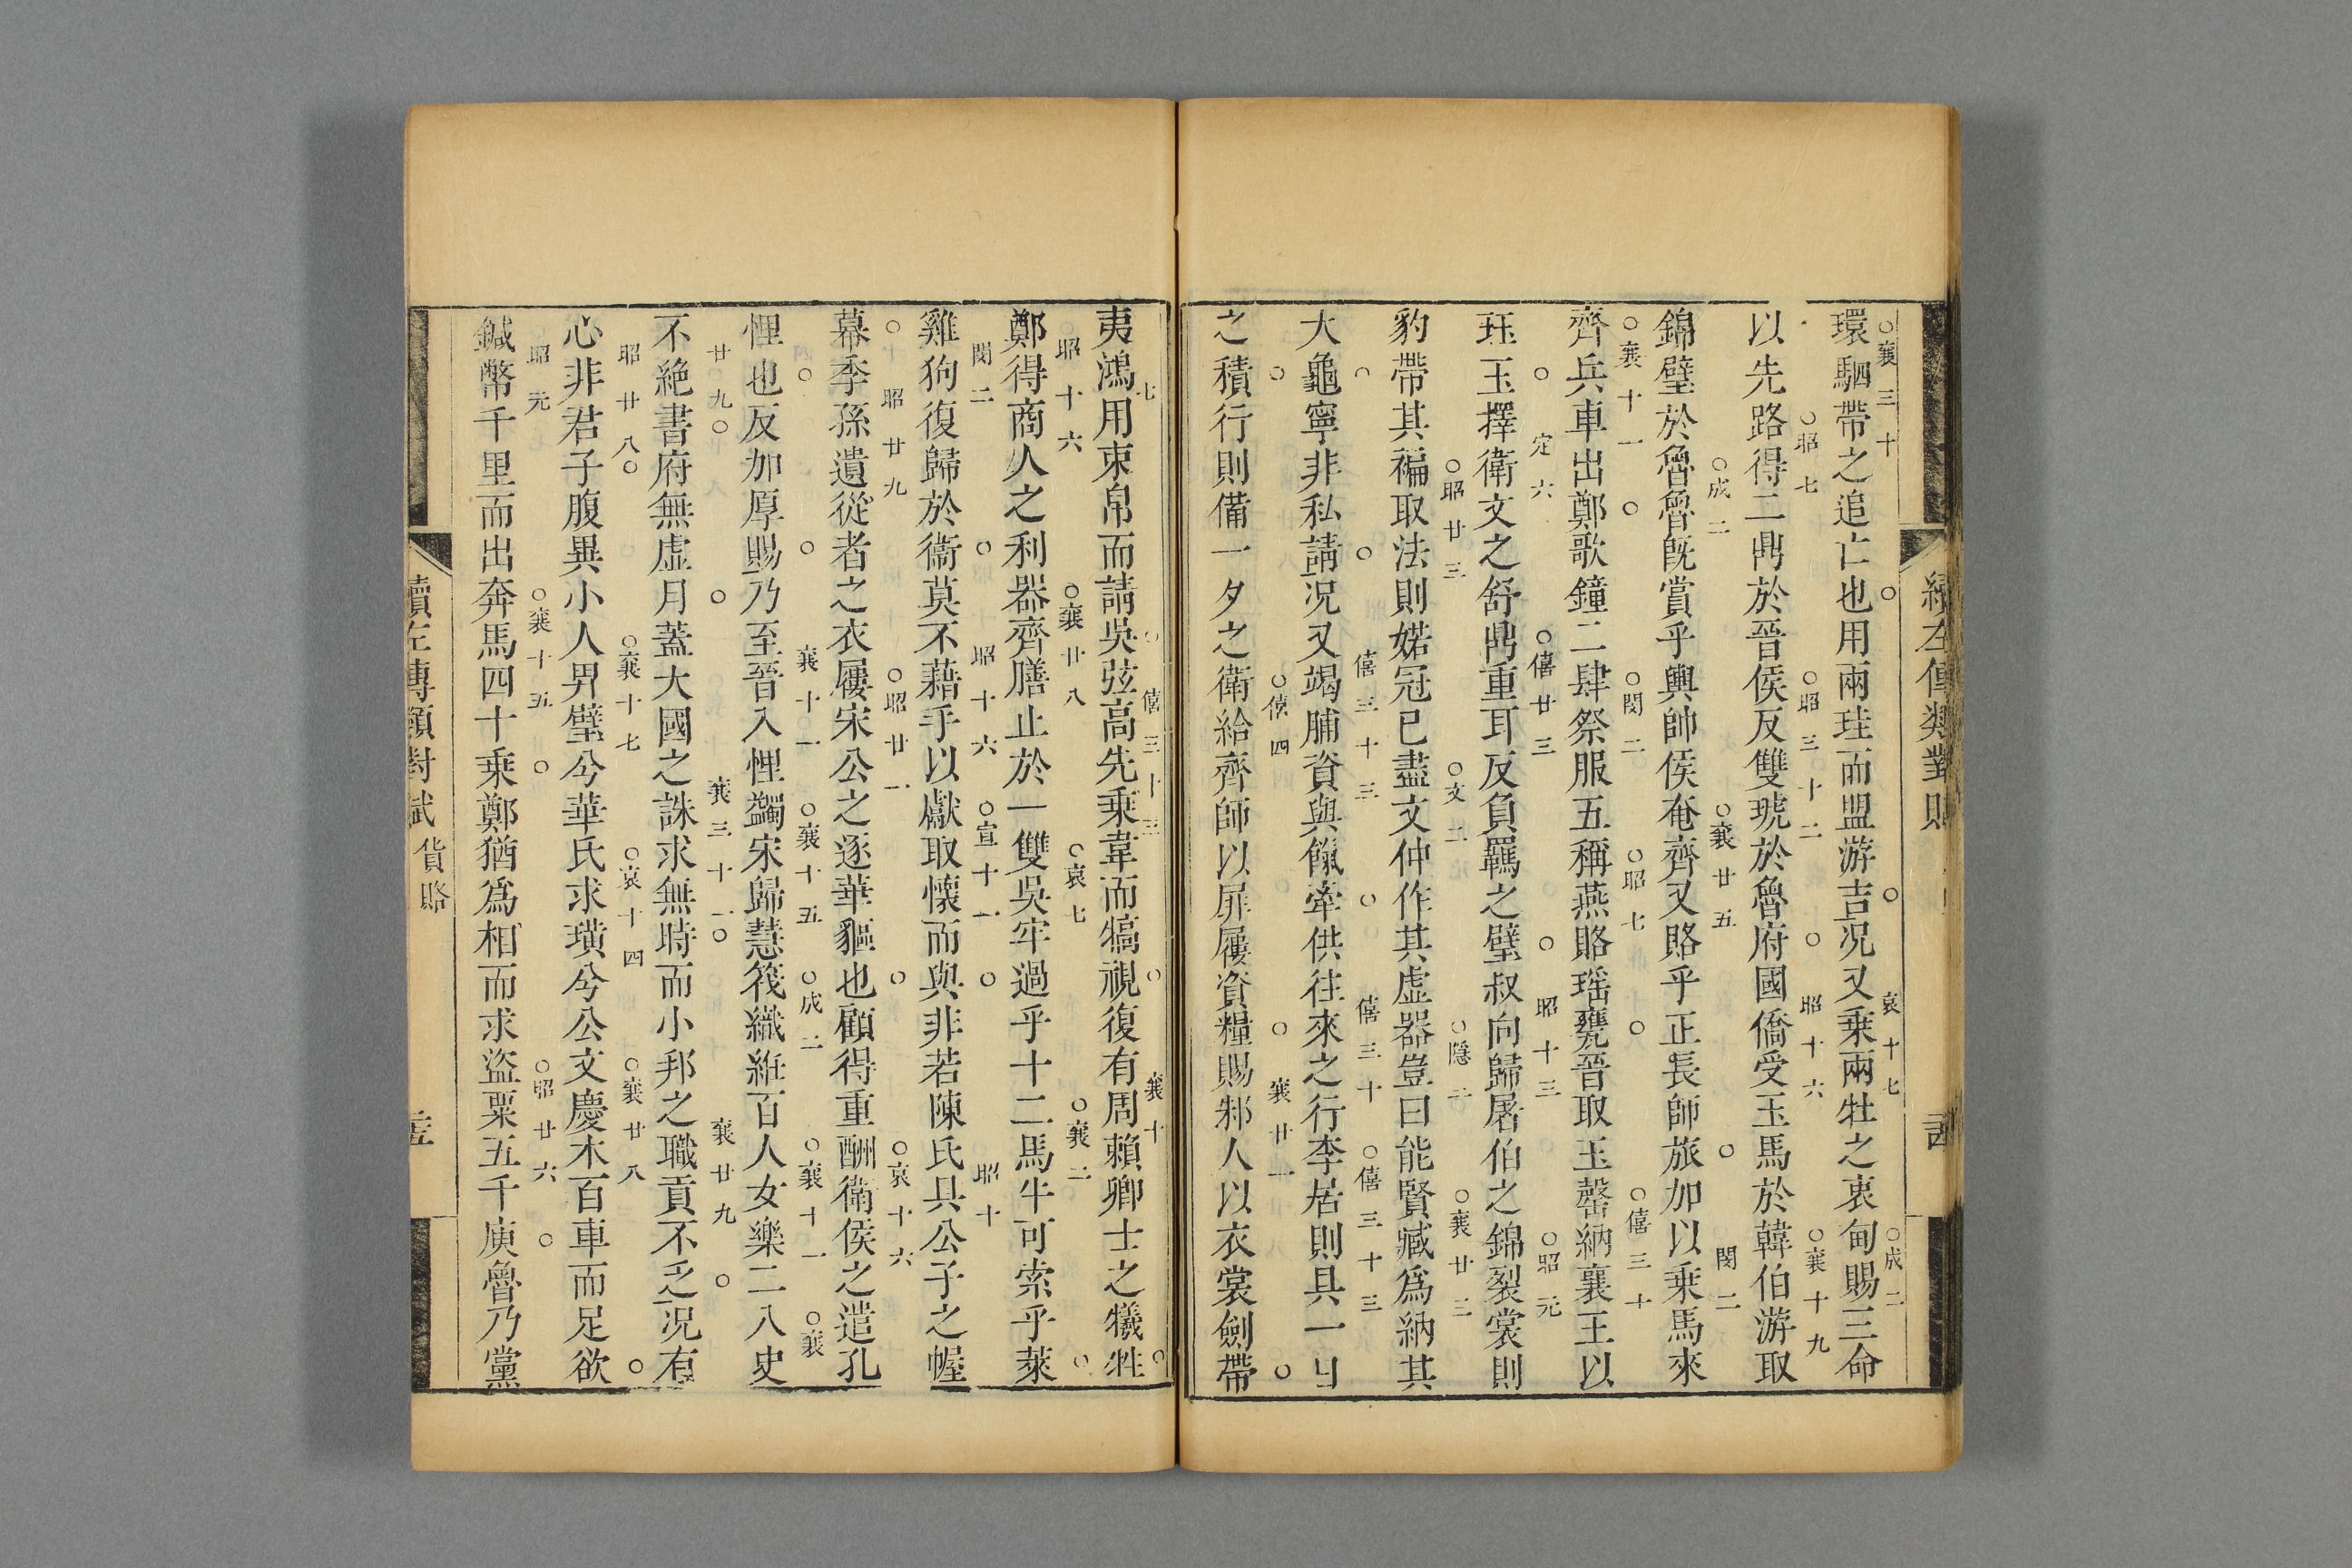 續左傳類對賦
環駟帶之追亡也用兩珪而盟游吉况又乗兩牡之衷甸賜三命
○襄三十 ○ ○ 哀十七 ○成二
以先路得二鼎於晉侯反雙琥於魯府國僑受玉馬於韓伯游取
○昭七 ○昭三十二 ○ 昭十六 ○襄十九
錦璧於魯魯旣賞乎輿帥侯奄齊又賂乎正長師旅加以乗馬來
○成二 ○襄廿五 ○ 閔二
齊兵車出鄭歌鐘二肆祭服五稱燕賂瑶罋晉取玉罄納襄王以
○襄十一 ○ ○閔二 ○昭七 ○ ○僖三十
珏玉擇衛文之舒鼎重耳反負羈之璧叔向歸屠伯之錦裂裳則
○ 定六 ○僖廿三 ○ 昭十三 ○昭元
豹帶其褊取法則婼冠已盡文仲作其虛器豈曰能賢臧爲納其
○昭廿三 ○文二 ○隱二 ○襄廿三
大龜寧非私請况又竭脯資與餼牽供往來之行李居則具一日
○ ○ 僖三十三 ○ 僖三十 ○僖三十三
之積行則備一夕之衛給齊師以屝屨資糧賜邾人以衣裳劍帶
○ ○僖四 ○ 襄廿一 ○
夷鴻用束帛而請吳弦高先乗韋而犒視復有周賴卿士之犧牲
七 ○ 僖三十三 ○ 襄十 ○
鄭得商人之利器齊膳止於一雙吳牢過乎十二馬牛可索乎萊
昭十六 ○襄廿八 ○哀七 ○襄二 ○
雞狗復歸於衞莫不藉手以獻取懷而與非若陳氏具公子之幄
閔二 ○ 昭十六 ○宣十一 ○ 昭十
幕季孫遺從者之衣屨宋公之逐華貙也顧得重酬衞侯之遣孔
○ 昭廿九 ○昭廿一 ○ ○哀十六
悝也反加厚賜乃至晉入悝蠲宋歸慧筏織紝百人女樂二八史
○ ○ 襄十一 ○襄十五 ○成二 ○襄十一 ○襄
不絶書府無虛月蓋大國之誅求無時而小邦之職貢不乏况有
廿九○ ○ 襄三十一○ 襄廿九 ○
心非君子腹異小人畀璧兮華氏求璜兮公文慶木百車而足欲
昭廿八○ ○襄十七 ○哀十四 ○襄廿八 ○
鍼幣千里而出奔馬四十乗鄭猶爲相而求盜粟五千庾魯乃黨
昭元 ○襄十五 ○ ○昭廿六 ○
續左傳類對賦 貨賂